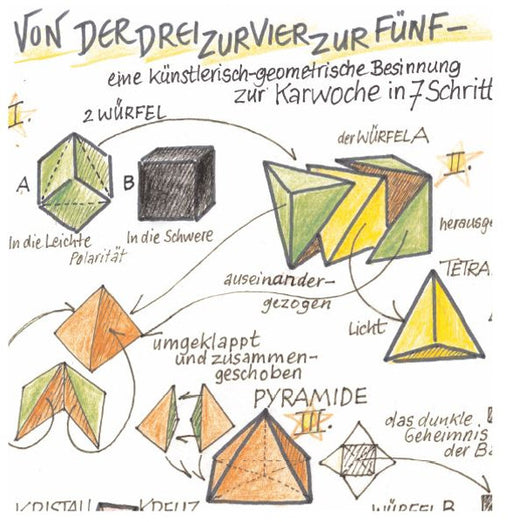 VON DER DREI ZUR VIER ZUR FÜNF–
eine künstlerisch-geometrische Besinnung
zur Karwoche in 7 Schritt
I.
2 WÜRFEL
der WÜRFEL A
II.
A
B
In die Leichte
Polarität
In die Schwere
herausge
auseinander-
gezogen
TETRA
Licht
umgeklappt
und zusammen-
geschoben
PYRAMIDE
III.
das dunkle
Geheimnis
der Ba
KRISTALL
KREUZ
WÜRFEL B